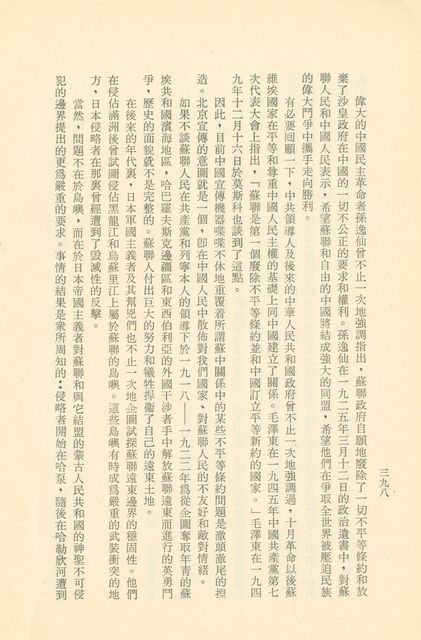 三九八
偉大的中國民主革命者孫逸仙曾不止一次地強調指出，蘇聯政府自願地廢除了一切不平等條約和放
棄了沙皇政府在中國的一切不公正的要求和權利。孫逸仙在一九二五年三月十二日的政治遺書中，對蘇
聯人民和中國人民表示，希望蘇聯和自由的中國將結成強大的同盟，希望他們在爭取全世界被壓迫民族
的偉大鬥爭中攜手走向勝利。
有必要回顧一下，中共領導人及後來的中華人民共和國政府曾不止一次地強調過，十月革命以後蘇
維埃國家在平等和尊重中國人民主權的基礎上同中國建立了關係。毛澤東在一九四五年中國共產黨第七
次代表大會上指出，「蘇聯是第一個廢除不平等條約並和中國訂立平等新約的國家。」毛澤東在一九四
九年十二月十六日於莫斯科也談到了這點。
因此，目前中國宣傳機器喋喋不休地重覆着所謂蘇中關係中的某些不平等條約問題是澈頭澈尾的捏
造。北京宣傳的意圖就是一個，卽在中國人民中散佈對我們國家、對蘇聯人民的不友好和敵對情緒。
如果不談蘇聯人民在共產黨和列寧本人的領導下於一九一八——一九二二年爲從企圖奪取年靑的蘇
埃共和國濱海地區，哈巴羅夫斯克邊疆區和東西伯利亞的外國干涉者手中解放蘇聯遠東而進行的英勇鬥
爭，歷史的面貌就不是完整的。蘇聯人付出巨大的努力和犧牲捍衞了自己的遠東土地。
在後來的年代裏，日本軍國主義者及其幫兇們也不止一次地企圖試探蘇聯遠東邊界的穩固性。他們
在侵佔滿洲後曾試圖侵佔黑龍江和烏蘇里江上屬於蘇聯的島嶼。這些島嶼有時成爲嚴重的武裝衝突的地
方，日本侵略者在那裏曾經遭到了毀滅性的反擊。
當然，問題不在於島嶼，而在於日本帝國主義者對蘇聯和與它結盟的蒙古人民共和國的神聖不可侵
犯的邊界提出的更爲嚴重的要求。事情的結果是衆所周知的：侵略者開始在哈泵，隨後在哈勒欣河遭到